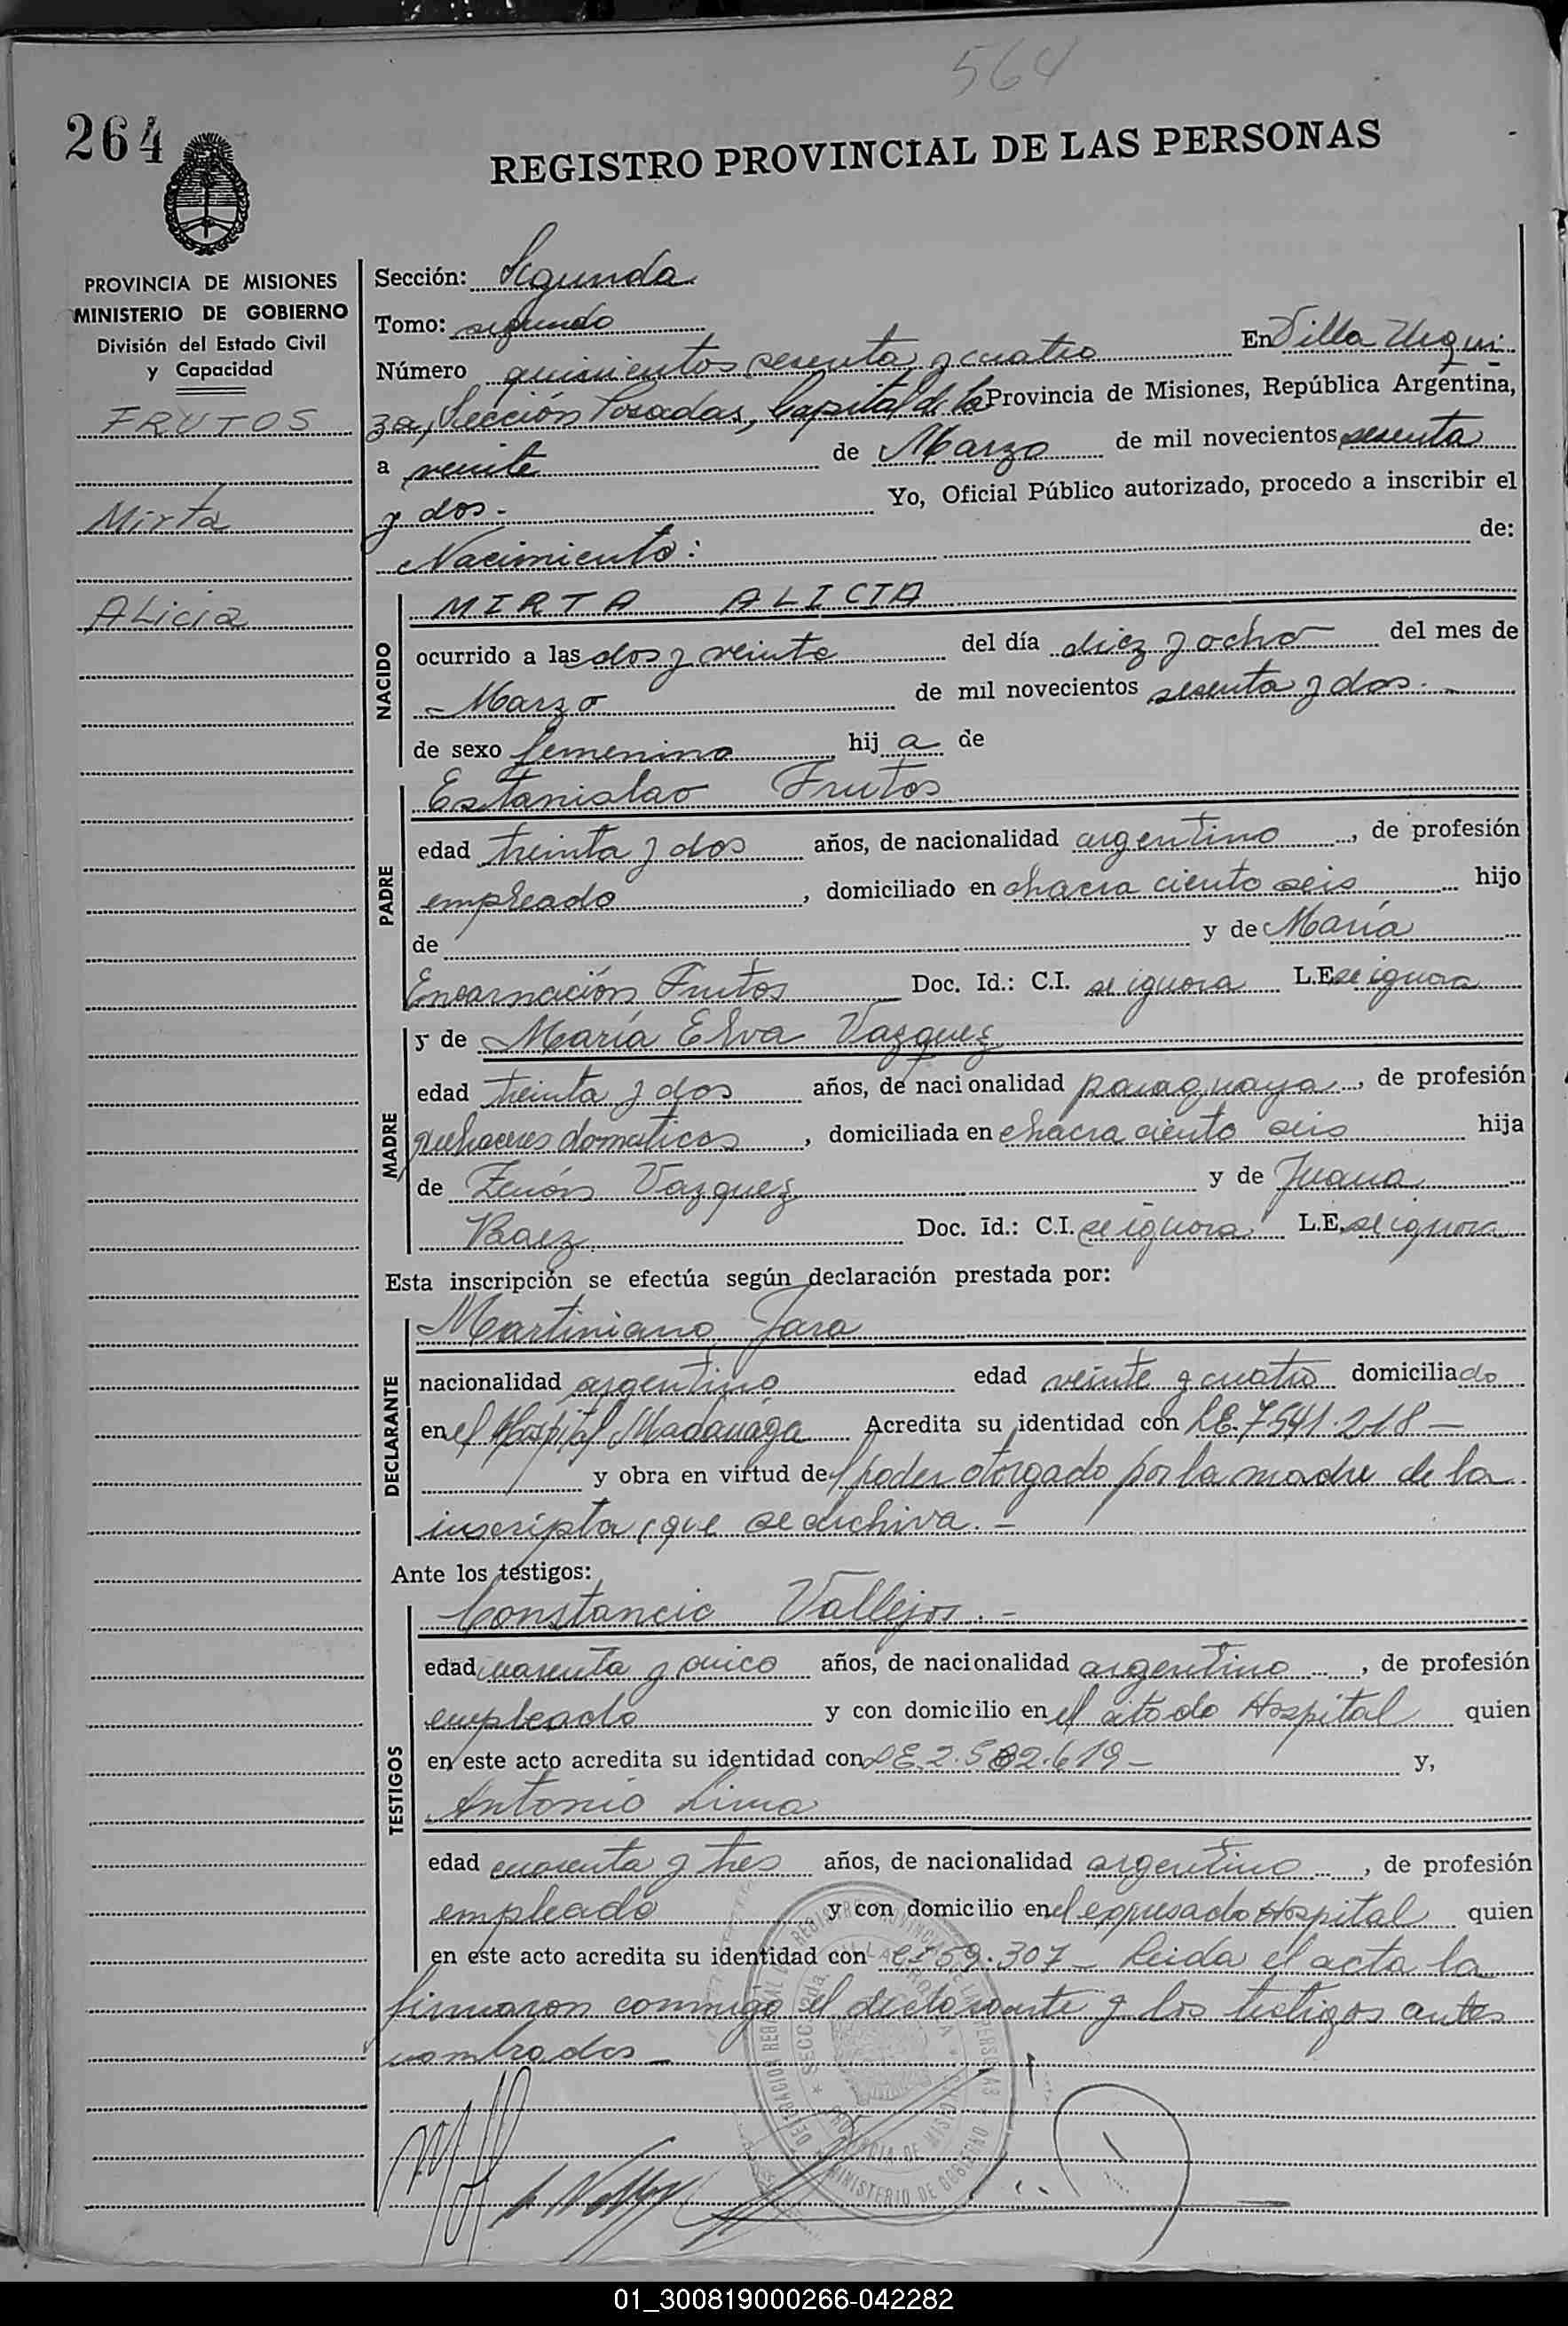 564
264
REGISTRO PROVINCIAL DE LAS PERSONAS
PROVINCIA DE MISIONES
MINISTERIO DE GOBIERNO
División del Estado Civil
y Capacidad
FRUTOS
Mirta
Alicia
Sección: Segunda
Tomo: segundo
Número quinientos sesenta y cuatro En Villa Urqui-
za, Sección Posadas, Capital de la Provincia de Misiones, República Argentina,
a veinte de Marzo de mil novecientos sesenta
y dos.- Yo, Oficial Público autorizado, procedo a inscribir el
Nacimiento: de:
NACIDO
MIRTA ALICIA
ocurrido a las dos y veinte del día diez y ocho del mes de
Marzo de mil novecientos sesenta y dos.-
de sexo femenino hija de
PADRE
Estanislao Frutos
edad treinta y dos años, de nacionalidad argentino, de profesión
empleado, domiciliado en chacra ciento seis hijo
de y de María
Encarnación Frutos Doc. Id.: C.I. se ignora L.E. se ignora
MADRE
y de María Elva Vazquez
edad treinta y dos años, de nacionalidad paraguaya, de profesión
quehaceres domesticos, domiciliada en chacra ciento seis hija
de Zenón Vazquez y de Juana
Baez Doc. Id.: C.I. se ignora L.E. se ignora
Esta inscripción se efectúa según declaración prestada por:
DECLARANTE
Martiniano Jara
nacionalidad argentino edad veinte y cuatro domiciliado
en el Hospital Madariaga Acredita su identidad con LE. 7541.218-
y obra en virtud del poder otorgado por la madre de la
inscripta, que se archiva.-
Ante los testigos:
TESTIGOS
Constancio Vallejos.-
edad cuarenta y cinco años, de nacionalidad argentino, de profesión
empleado y con domicilio en el citado Hospital quien
en este acto acredita su identidad con LE. 2.582.619- y,
Antonio Lima
edad cuarenta y tres años, de nacionalidad argentino, de profesión
empleado y con domicilio en el expresado Hospital quien
en este acto acredita su identidad con CI 59.307- Leida el acta la
firmaron conmigo el declarante y los testigos antes
nombrados-
PROVINCIA DE MISIONES
MINISTERIO DE GOBIERNO
01_300819000266-042282